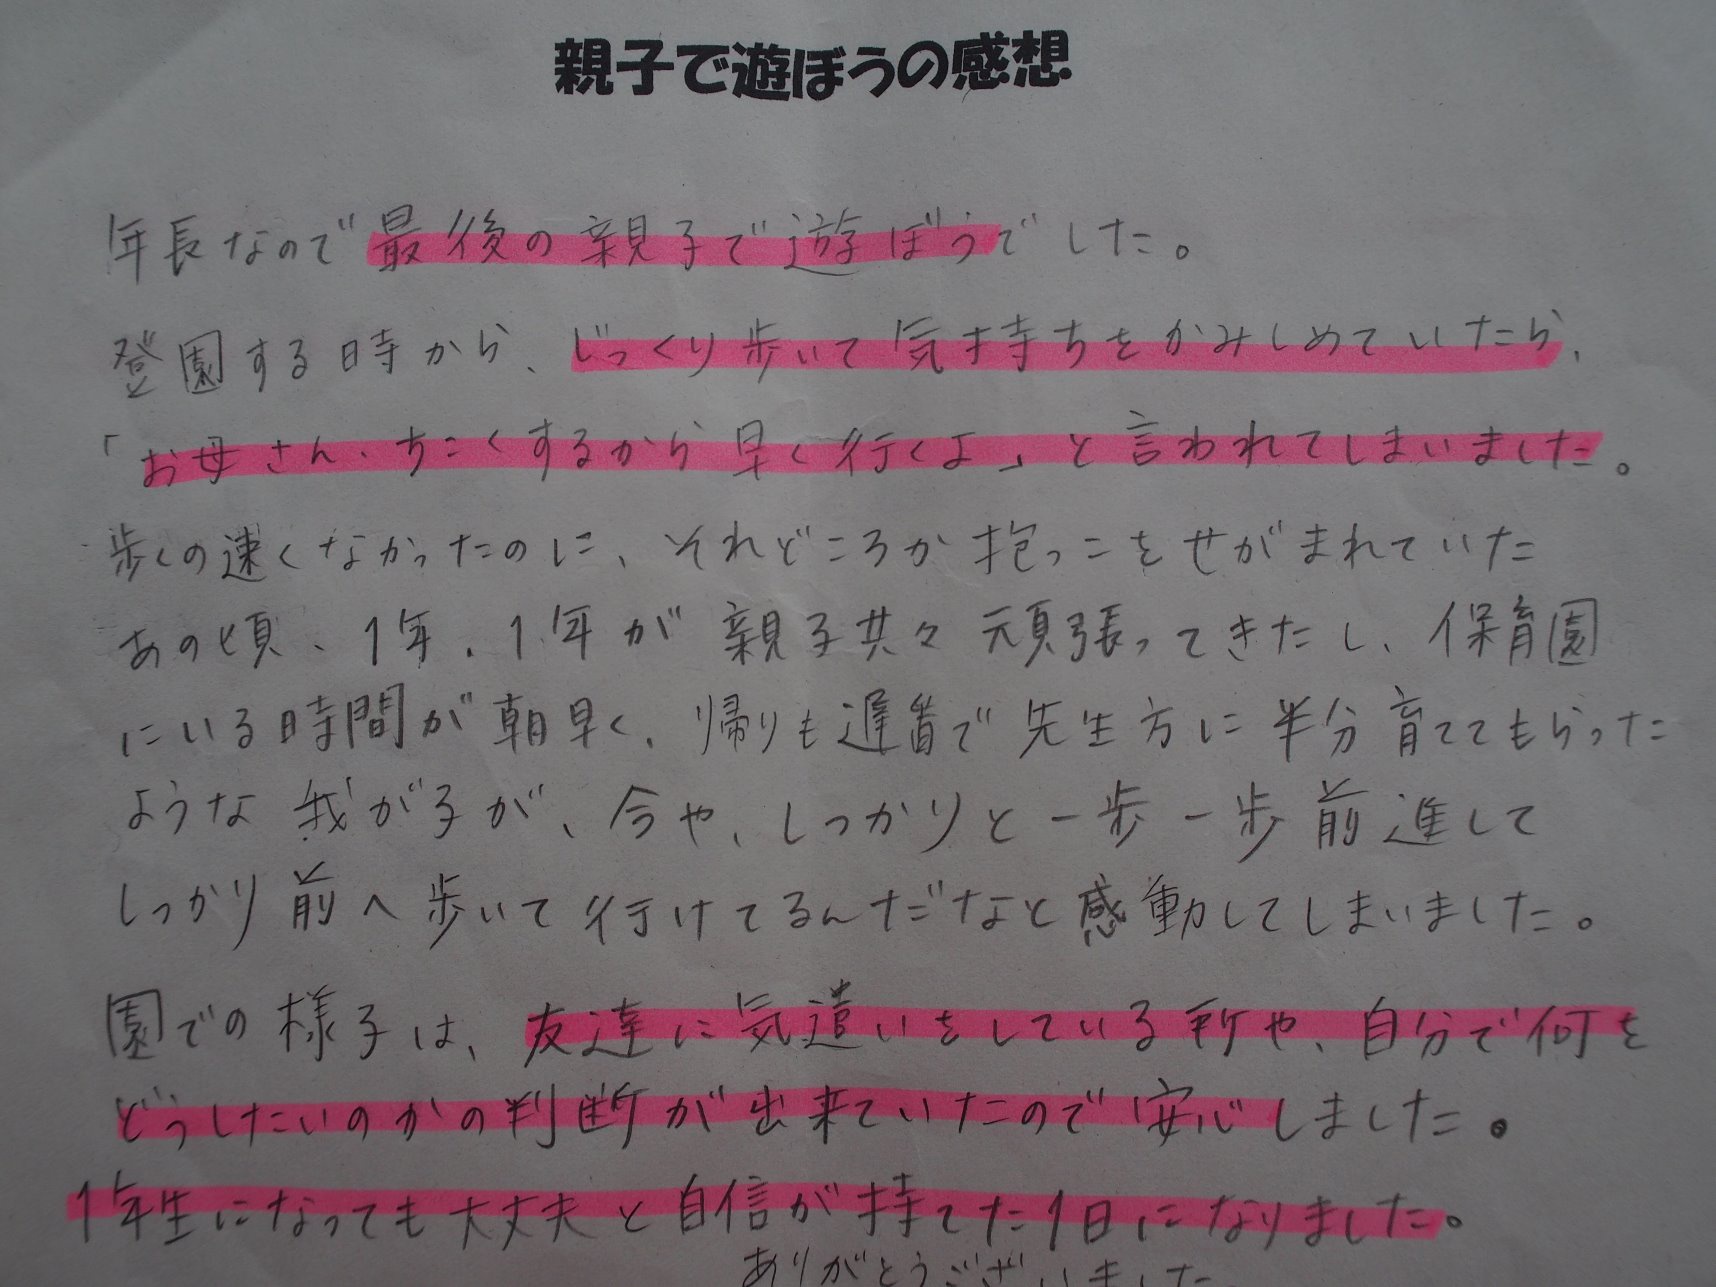 親子で遊ぼうの感想
年長なので最後の親子で遊ぼうでした。
登園する時から、じっくり歩いて気持ちをかみしめていたら、
「お母さん、ちこくするから早く行くよ」と言われてしまいました。
歩くの速くなかったのに、それどころか抱っこをせがまれていた
あの頃、1年、1年が親子共々頑張ってきたし、保育園
にいる時間が朝早く、帰りも遅番で先生方に半分育ててもらった
ような我が子が、今や、しっかりと一歩一歩前進して
しっかり前へ歩いて行けてるんだなと感動してしまいました。
園での様子は、友達に気遣いをしている所や、自分で何を
どうしたいのかの判断が出来ていたので安心しました。
1年生になっても大丈夫と自信が持てた1日になりました。
ありがとうございました